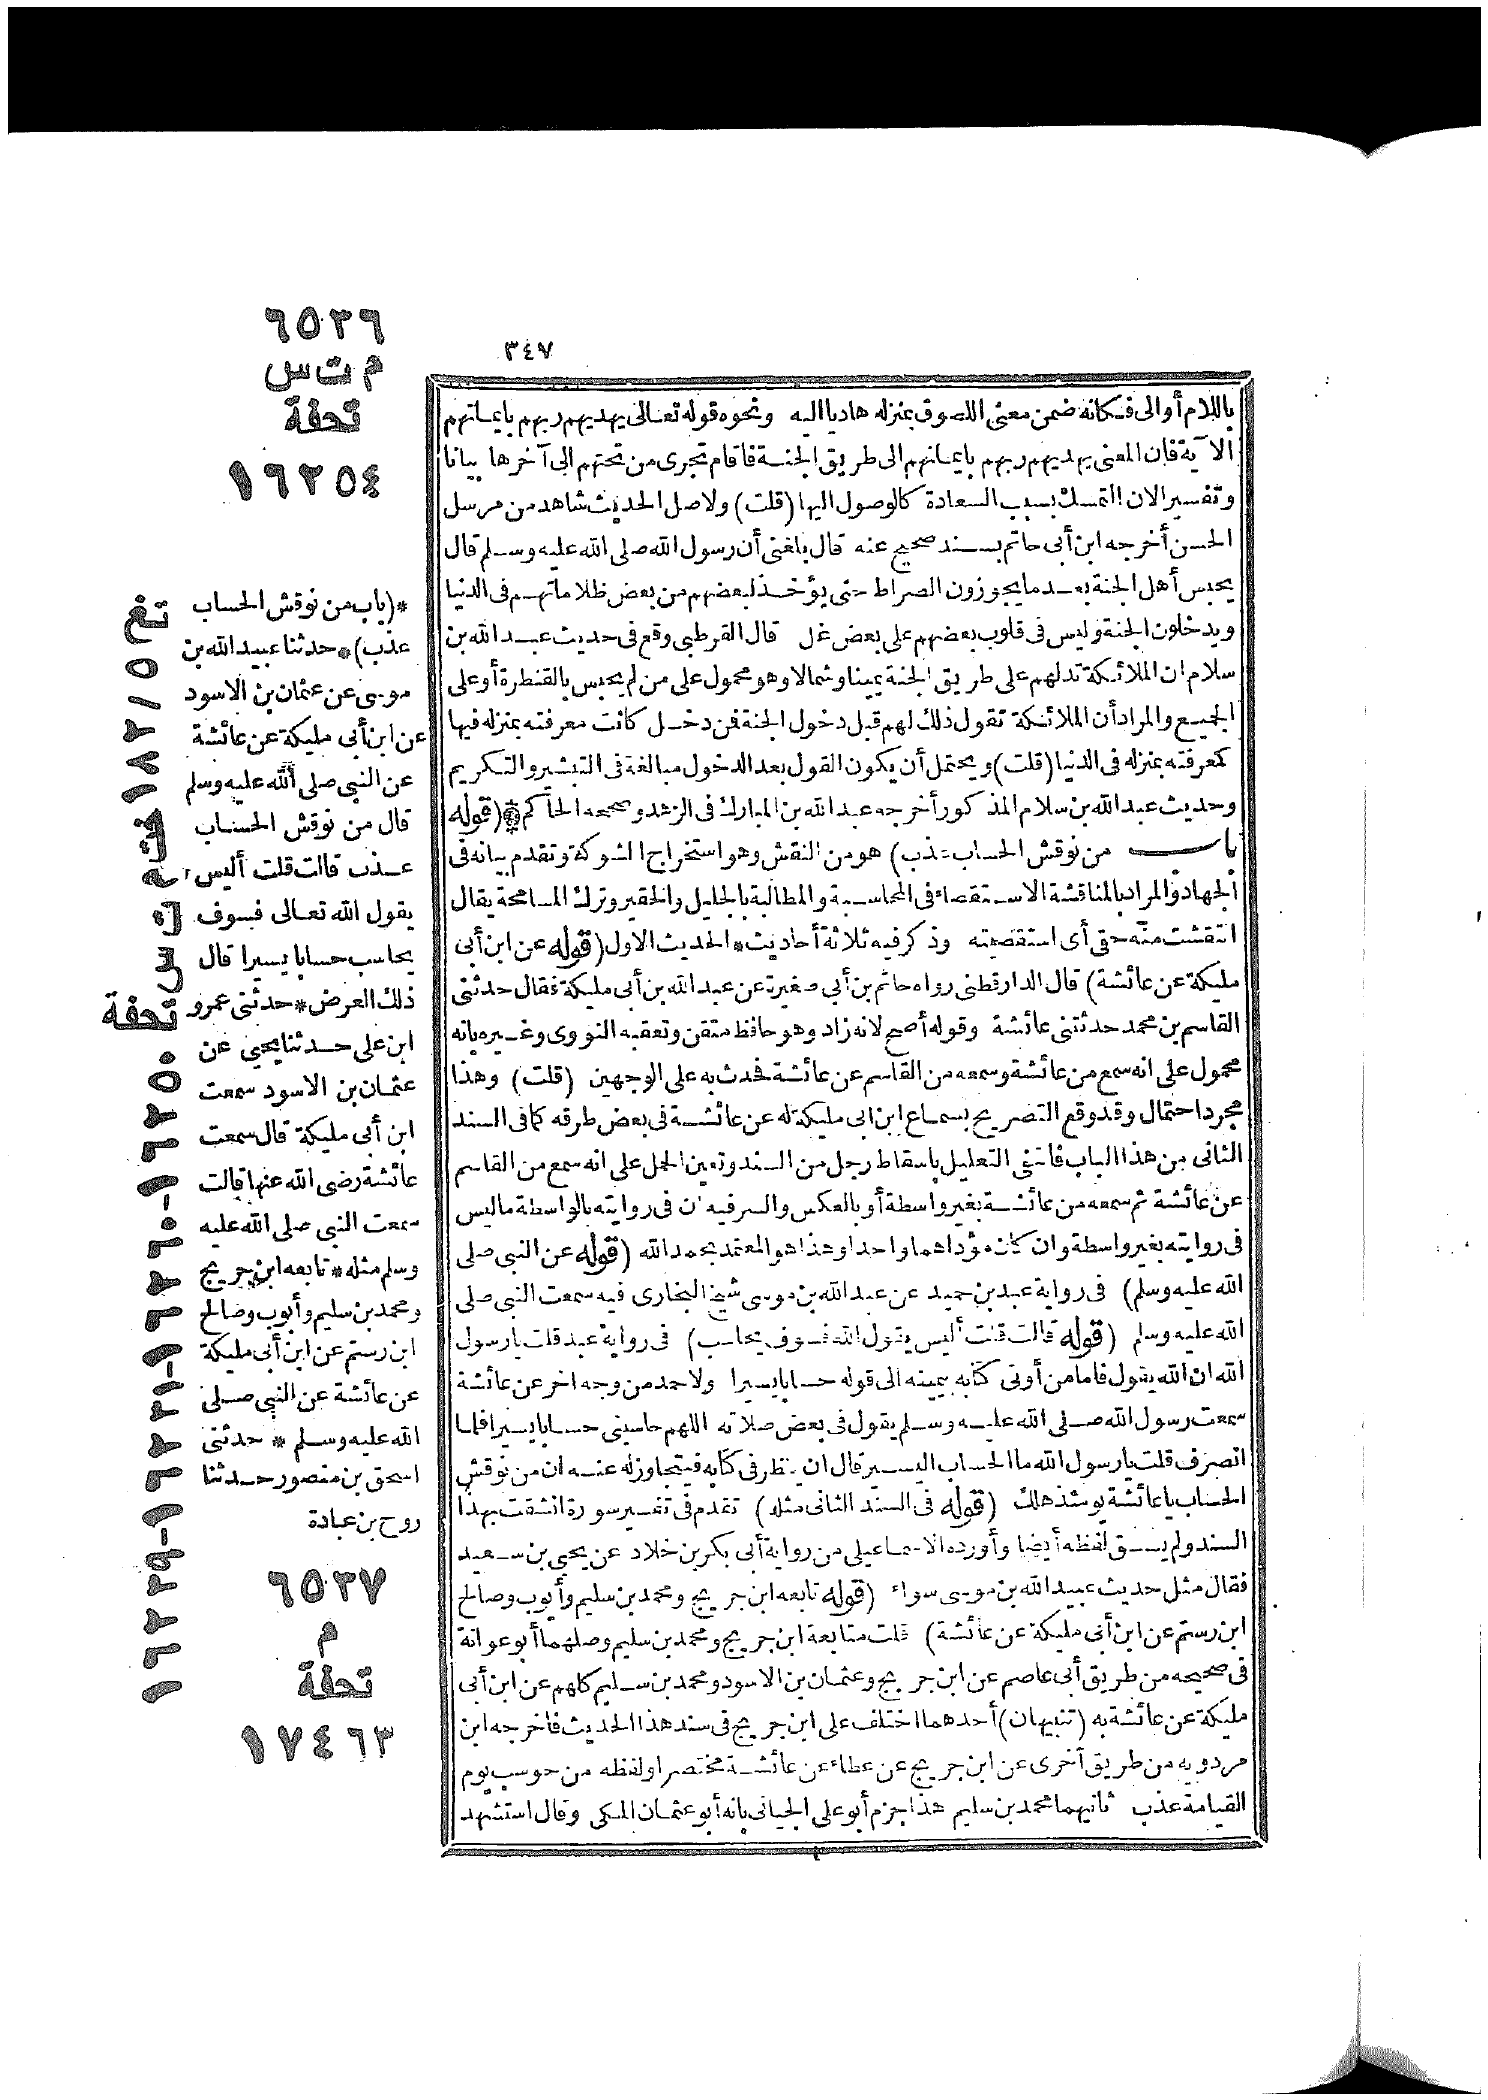 ٣٤٧
باللام أو الى فكانه ضمن معنى اللصوق بمنزله هاديا اليه ونحوه قوله تعالى يهديهم ربهم بايمانهم
الآية فان المعنى يهديهم ربهم بايمانهم الى طريق الجنة فاقام تجرى من تحتهم الى آخرها بيانا
وتفسيرا لان التمسك بسبب السعادة كالوصول اليها (قلت) ولاصل الحديث شاهد من مرسل
الحسن أخرجه ابن أبى حاتم بسند صحيح عنه قال بلغنى أن رسول الله صلى الله عليه وسلم قال
يحبس أهل الجنة بعد ما يجوزون الصراط حتى يؤخذ لبعضهم من بعض ظلاماتهم فى الدنيا
ويدخلون الجنة وليس فى قلوب بعضهم على بعض غل قال القرطبى وقع فى حديث عبد الله بن
سلام ان الملائكة تدلهم على طريق الجنة يمينا وشمالا وهو محمول على من لم يحبس بالقنطرة أو على
الجميع والمراد أن الملائكة تقول ذلك لهم قبل دخول الجنة فمن دخل كانت معرفته بمنزله فيها
كمعرفته بمنزله فى الدنيا (قلت) ويحتمل أن يكون القول بعد الدخول مبالغة فى التبشير والتكريم
وحديث عبد الله بن سلام المذكور أخرجه عبد الله بن المبارك فى الزهد وصححه الحاكم * (قوله
باب من نوقش الحساب عذب) هو من النقش وهو استخراج الشوكة وتقدم بيانه فى
الجهاد والمراد بالمناقشة الاستقصاء فى المحاسبة والمطالبة بالجليل والحقير وترك المسامحة يقال
انتقشت منه حقى أى استقصيته وذكر فيه ثلاثة أحاديث * الحديث الاول (قوله عن ابن أبى
مليكة عن عائشة) قال الدارقطنى رواه حاتم بن أبى صغيرة عن عبد الله بن أبى مليكة فقال حدثنى
القاسم بن محمد حدثتنى عائشة وقوله أصح لانه زاد وهو حافظ متقن وتعقبه النووى وغيره بانه
محمول على انه سمع من عائشة وسمعه من القاسم عن عائشة فحدث به على الوجهين (قلت) وهذا
مجرد احتمال وقد وقع التصريح بسماع ابن ابى مليكة له عن عائشة فى بعض طرقه كما فى السند
الثانى من هذا الباب فانتفى التعليل باسقاط رجل من السند وتعين الحمل على انه سمع من القاسم
عن عائشة ثم سمعه من عائشة بغير واسطة أو بالعكس والسر فيه ان فى روايته بالواسطة ما ليس
فى روايته بغير واسطة وان كان مؤداهما واحدا وهذا هو المعتمد بحمد الله (قوله عن النبى صلى
الله عليه وسلم) فى رواية عبد بن حميد عن عبد الله بن موسى شيخ البخارى فيه سمعت النبى صلى
الله عليه وسلم (قوله قالت قلت أليس يقول الله فسوف يحاسب) فى رواية عبد قلت يا رسول
الله ان الله يقول فاما من أوتى كتابه بيمينه الى قوله حسابا يسيرا ولاحمد من وجه اخر عن عائشة
سمعت رسول الله صلى الله عليه وسلم يقول فى بعض صلاته اللهم حاسبنى حسابا يسيرا فلما
انصرف قلت يا رسول الله ما الحساب اليسير قال ان ينظر فى كتابه فيتجاوز له عنه ان من نوقش
الحساب يا عائشة يومئذ هلك (قوله فى السند الثانى مثله) تقدم فى تفسير سورة انشقت بهذا
السند ولم يسق لفظه أيضا وأورده الاسماعيلى من رواية أبى بكر بن خلاد عن يحيى بن سعيد
فقال مثل حديث عبيد الله بن موسى سواء (قوله تابعه ابن جريج ومحمد بن سليم وأيوب وصالح
ابن رستم عن ابن أبى مليكة عن عائشة) قلت متابعة ابن جريج ومحمد بن سليم وصلهما أبو عوانة
فى صحيحه من طريق أبى عاصم عن ابن جريج وعثمان بن الاسود ومحمد بن سليم كلهم عن ابن أبى
مليكة عن عائشة به (تنبيهان) أحدهما اختلف على ابن جريج فى سند هذا الحديث فاخرجه ابن
مردويه من طريق أخرى عن ابن جريج عن عطاء عن عائشة مختصرا ولفظه من حوسب يوم
القيامة عذب ثانيهما محمد بن سليم هذا جزم أبو على الجيانى بانه أبو عثمان المكى وقال استشهد
٦٥٣٦
م ت س
تحفة
١٦٢٥٤
*(باب من نوقش الحساب
عذب)* حدثنا عبيد الله بن
موسى عن عثمان بن الاسود
عن ابن أبى مليكة عن عائشة
عن النبى صلى الله عليه وسلم
قال من نوقش الحساب
عذب قالت قلت أليس
يقول الله تعالى فسوف
يحاسب حسابا يسيرا قال
ذلك العرض * حدثنى عمرو
ابن على حدثنا يحيى عن
عثمان بن الاسود سمعت
ابن أبى مليكة قال سمعت
عائشة رضى الله عنها قالت
سمعت النبى صلى الله عليه
وسلم مثله * تابعه ابن جريج
ومحمد بن سليم وأيوب وصالح
ابن رستم عن ابن أبى مليكة
عن عائشة عن النبى صلى
الله عليه وسلم * حدثنى
اسحق بن منصور حدثنا
روح بن عبادة
٦٥٣٧
م
تحفة
١٧٤٦٣
تغ
تحفة